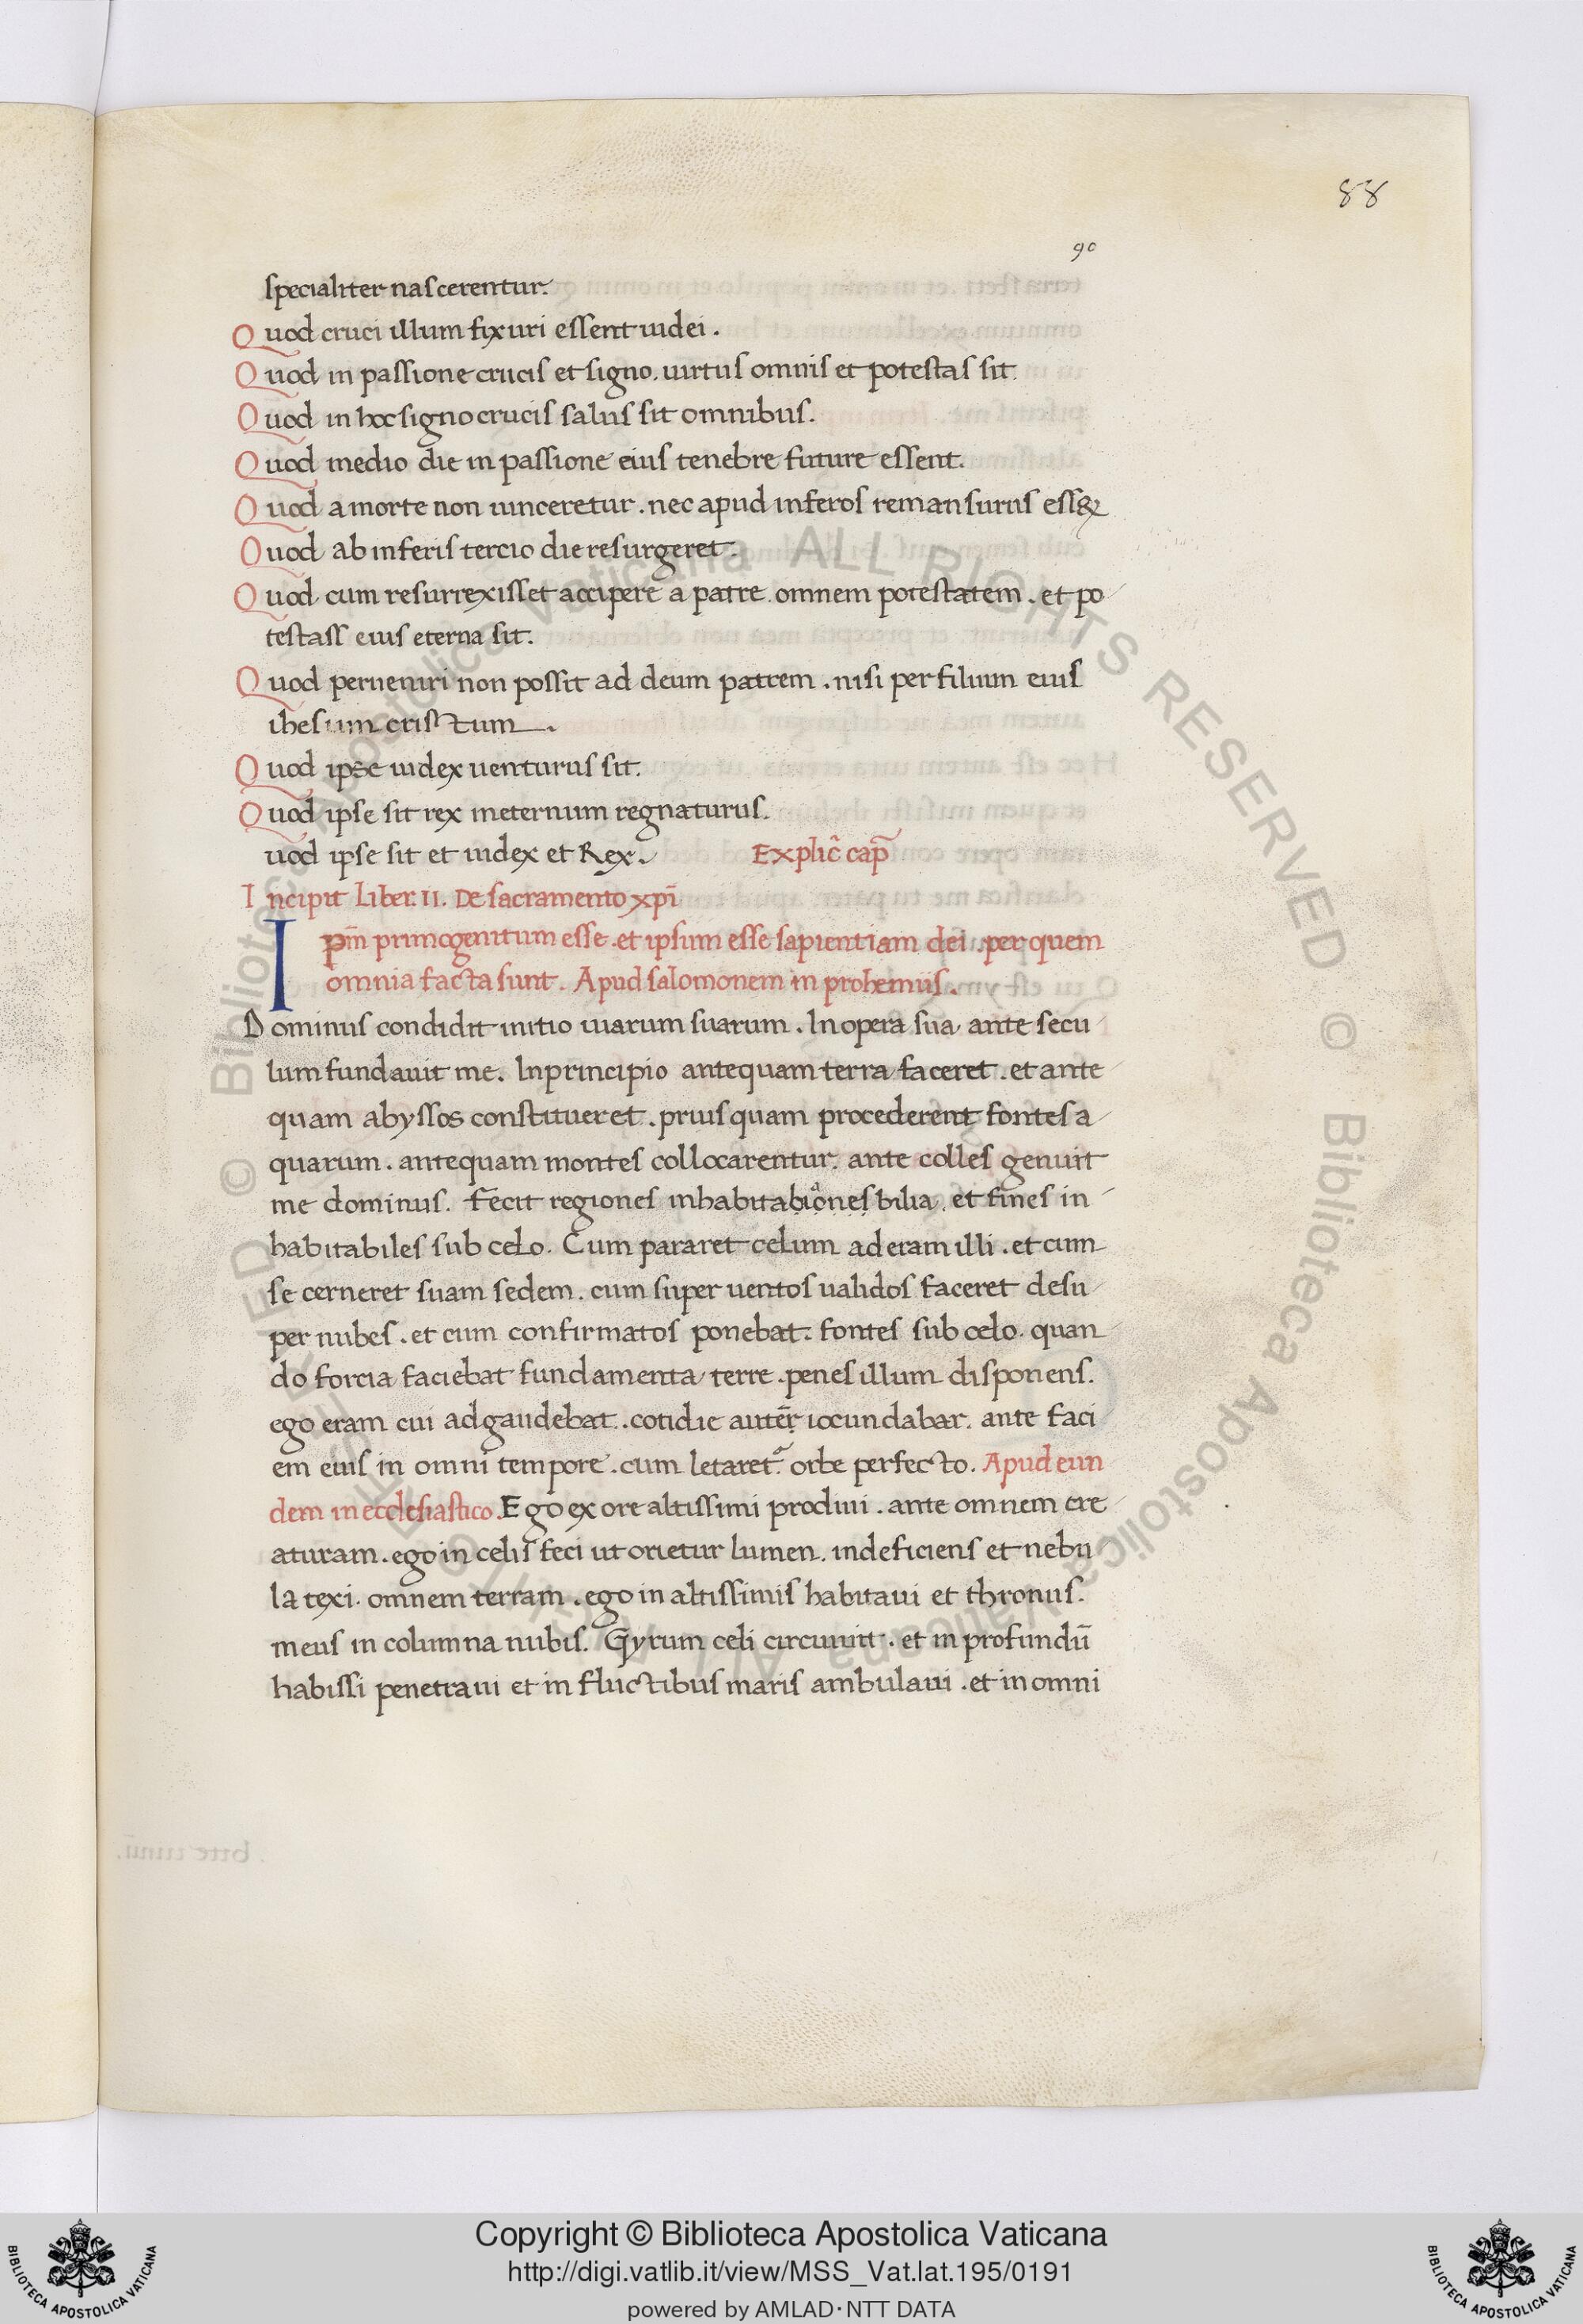 88
90
specialiter nascerentur.
Quod cruci illum fixuri essent iudei.
Quod in passione crucis et signo. uirtus omnis et potestas sit
Quod in hoc signo crucis salus sit omnibus.
Quod medio die in passione eius tenebre future essent.
Quod a morte non uinceretur. nec apud inferos remansurus esset
Quod ab inferis tercio die resurgeret.
Quod cum resurrexisset accipere a patre omnem potestatem. et po
testass eius eterna sit.
Quod perueniri non possit ad deum patrem. nisi per filium eius
ihesum cristum.
Quod ipse iudex uenturus sit.
Quod ipse sit rex ineternum regnaturus.
uod ipse sit et iudex et Rex. Explic̄ cap̄
Incipit Liber. II. De sacramento xp̄i
Ipm̄ primogenitum esse. et ipsum esse sapientiam dei. per quem
omnia facta sunt. Apud salomonem in prohemiis.
Dominus condidit initio uiarum suarum. In opera sua ante secu
lum fundauit me. In principio antequam terra faceret. et ante
quam abyssos constitueret. priusquam procederent fontes a
quarum. antequam montes collocarentur. ante colles genuit
me dominus. Fecit regiones inhabitabiones bilia. et fines in
habitabiles sub celo. Cum pararet celum aderam illi. et cum
se cerneret suam sedem. cum super uentos ualidos faceret desu
per nubes. et cum confirmatos ponebat. fontes sub celo. quan
do forcia faciebat fundamenta terre. penes illum disponens.
ego eram cui adgaudebat. cotidie iocundabar. ante faci
em eius in omni tempore. cum letaret᷑ orbe perfecto. Apud eun
dem in ecclesiastico. Ego ex ore altissimi prodiui. ante omnem cre
aturam. ego in celis feci ut orietur lumen. indeficiens et nebu
la texi. omnem terram. ego in altissimis habitaui et thronus.
meus in columna nubis. Gyrum celi circuiuit. et in profundū
habissi penetraui et in fluctibus maris ambulaui. et in omni
Copyright © Biblioteca Apostolica Vaticana
http://digi.vatlib.it/view/MSS_Vat.lat.195/0191
powered by AMLAD·NTT DATA
BIBLIOTECA APOSTOLICA VATICANA
BIBLIOTECA APOSTOLICA VATICANA
© Biblioteca Apostolica Vaticana ALL RIGHTS RESERVED © Biblioteca Apostolica Vaticana ALL RIGHTS RESERVED